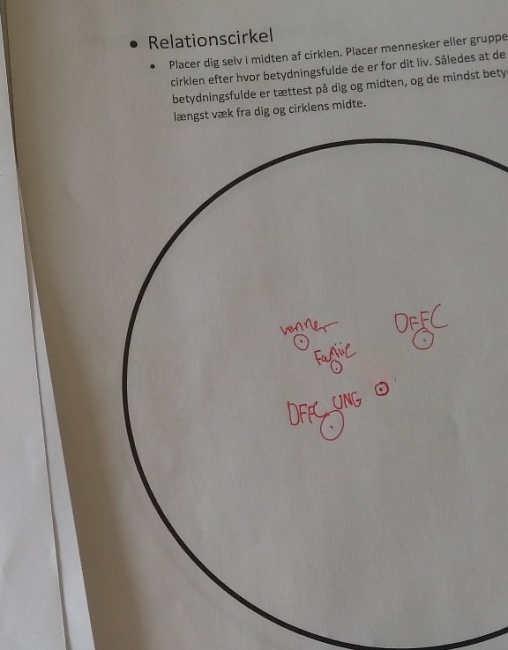 Relationscirkel
Placer dig selv i midten af cirklen. Placer mennesker eller gruppe
cirklen efter hvor betydningsfulde de er for dit liv. Således at de
betydningsfulde er tættest på dig og midten, og de mindst bety
længst væk fra dig og cirklens midte.
venner
DFFC
Familie
DFFC UNG